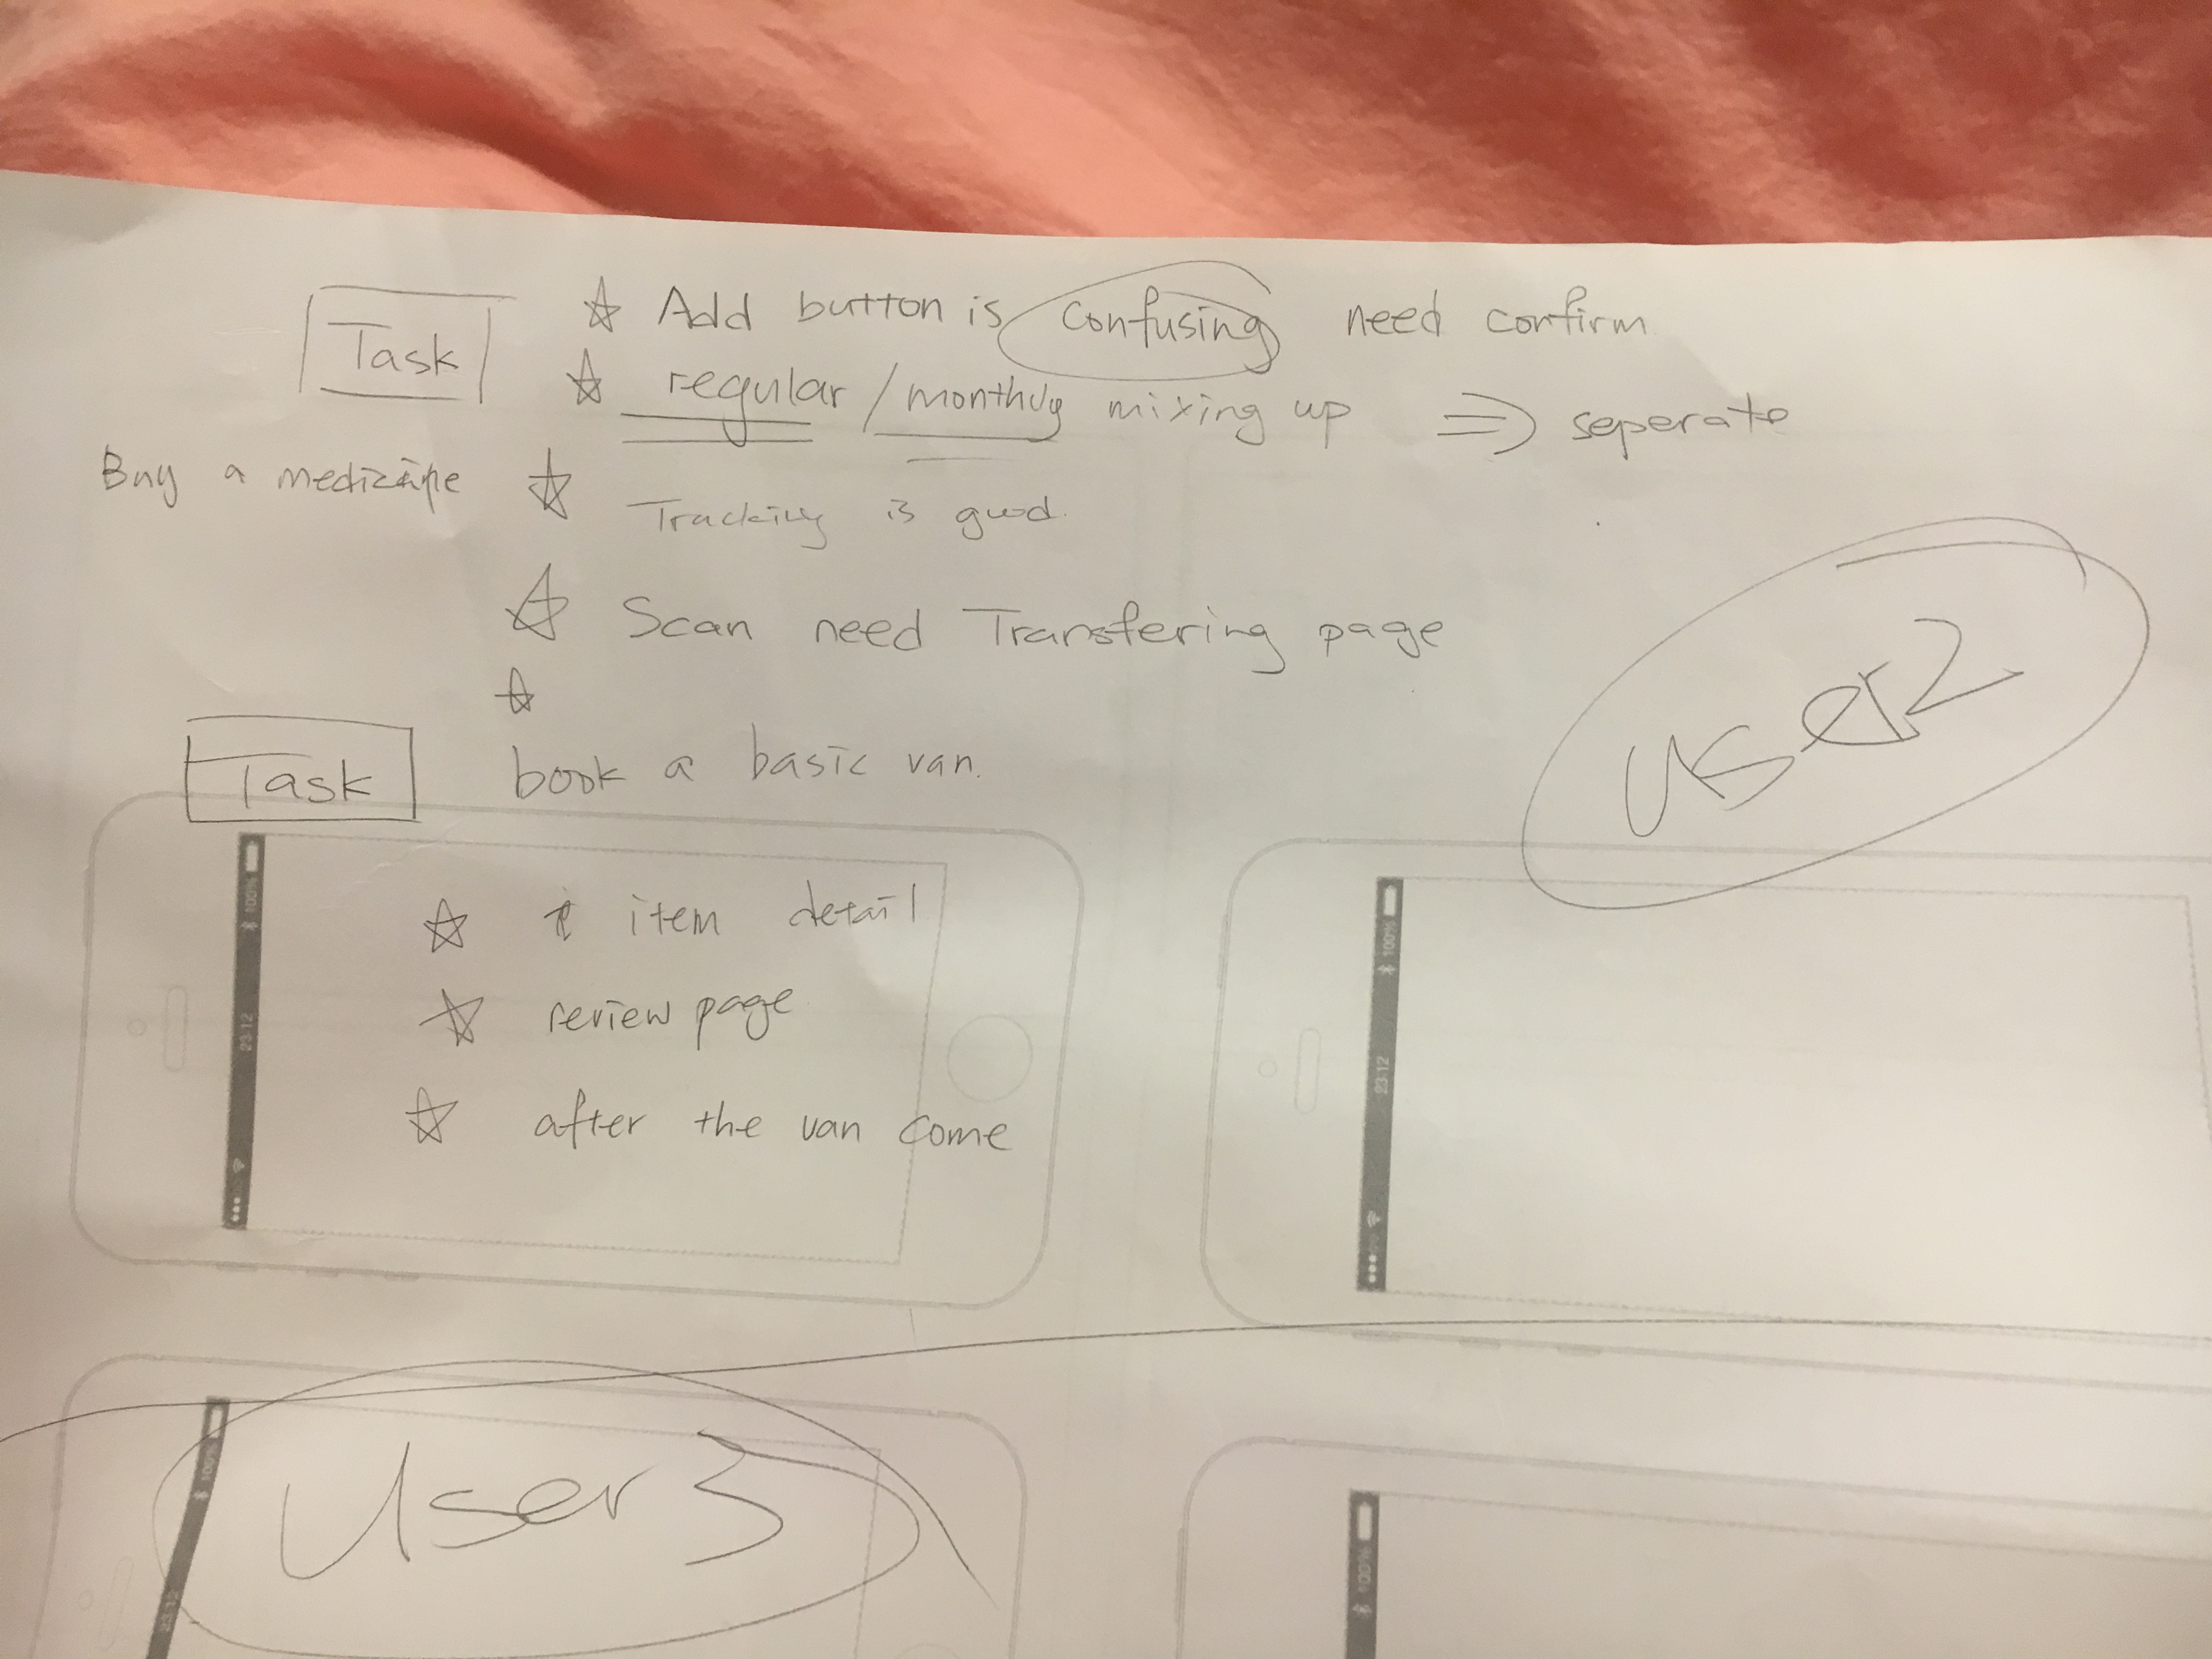 Task
☆ Add button is confusing need confirm
☆ regular / monthly mixing up ⇒ seperate
Buy a medicine
☆ Tracking is good.
☆ Scan need Transfering page
☆
User2
Task
book a basic van.
☆ item detail
☆ review page
☆ after the van come
100%
23:12
100%
23:12
User 3
100%
23:12
100%